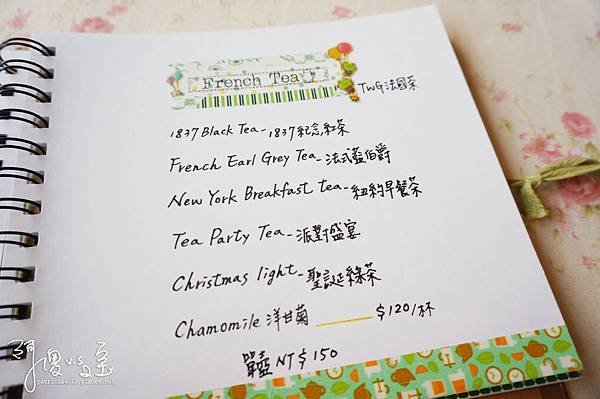 French Tea
TWG法國茶
1837 Black Tea - 1837紀念紅茶
French Earl Grey Tea - 法式藍伯爵
New York Breakfast tea - 紐約早餐茶
Tea Party Tea - 派對盛宴
Christmas light - 聖誕綠茶
Chamomile 洋甘菊 $120/杯
NT$150
patricia4022.pixnet.net